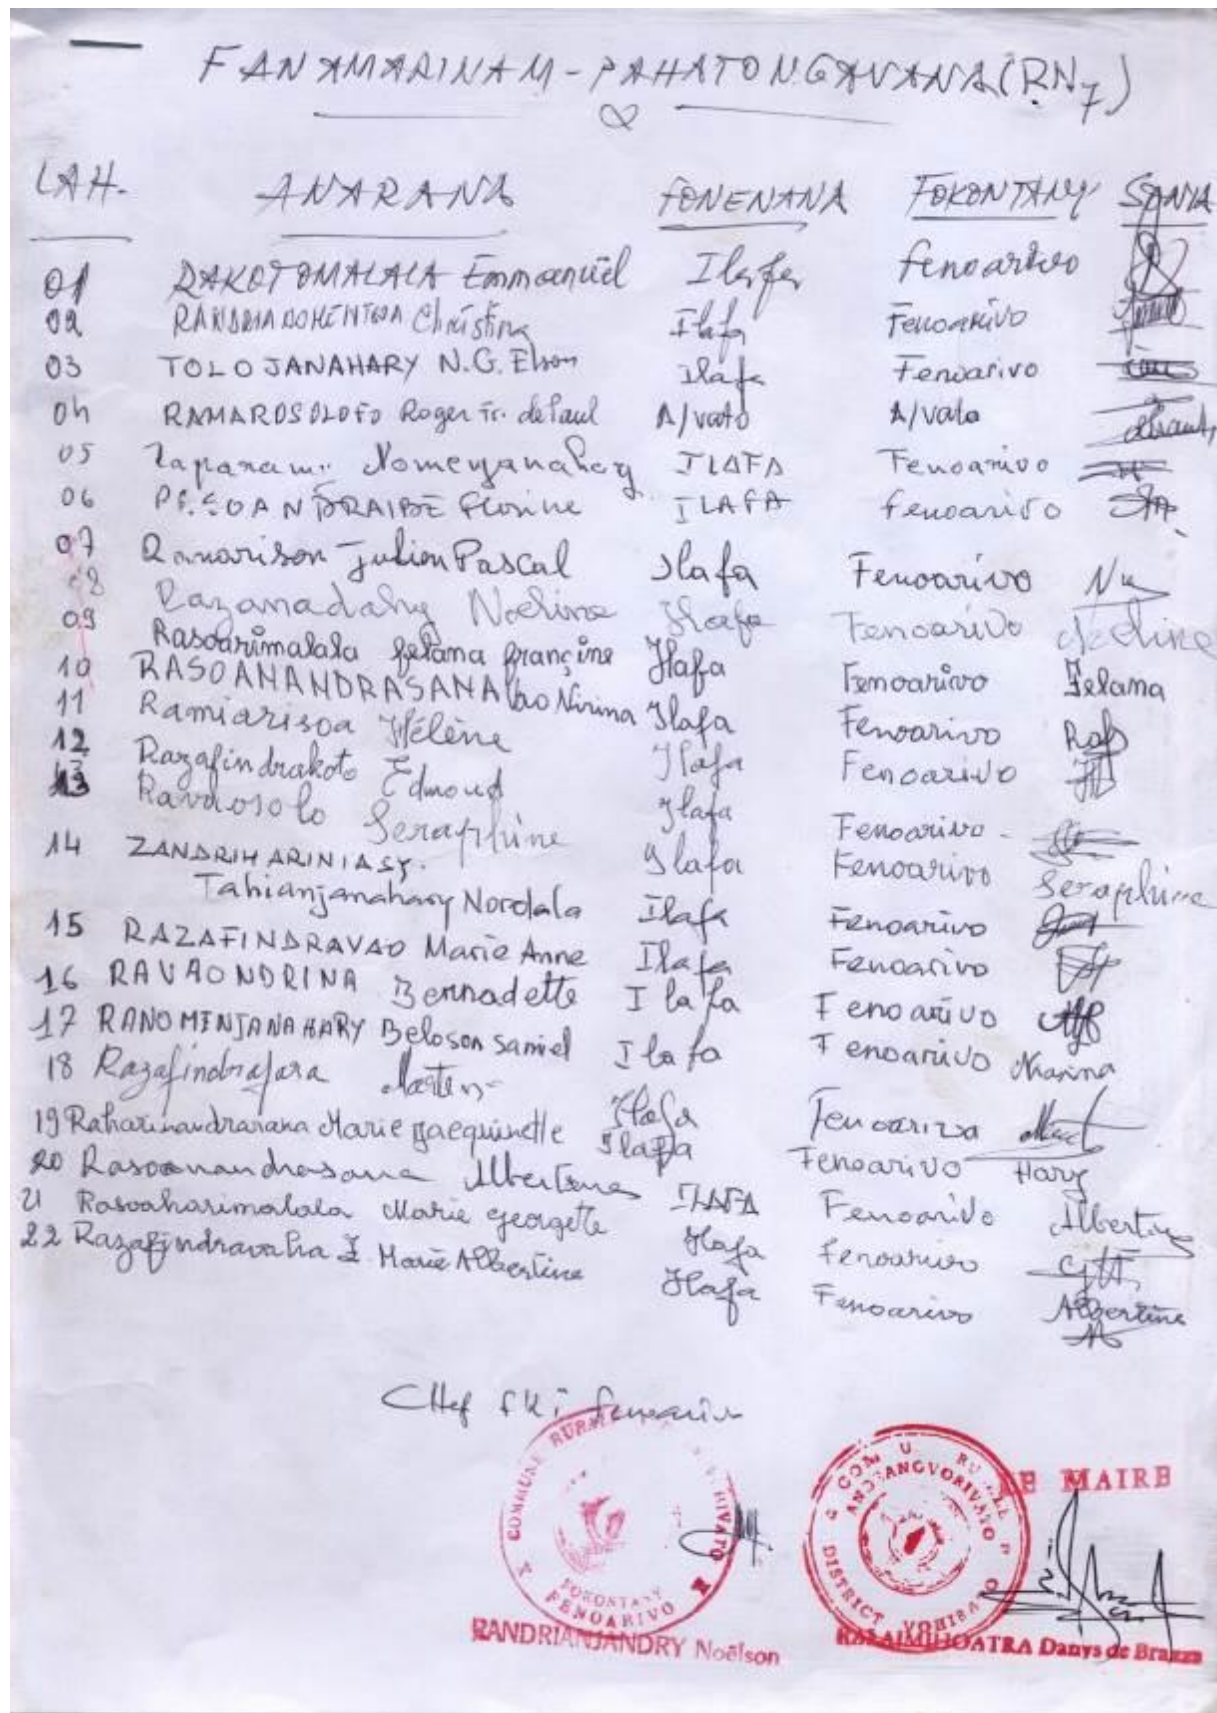 FANAMARINAM-PAHATONGAVANA (RN7)
LAH. ANARANA FONENANA FOKONTANY SONIA
01 RAKOTOMALALA Emmanuël Ilafa fenoarivo
02 Christina Ilafa Fenoarivo
03 TOLOJANAHARY N.G. Elson Ilafa Fenoarivo
04 RAMAROSOLOFO Roger Fr. de Paul A/vato A/vato
05 Nomenjanahary ILAFA Fenoarivo
06 Florine ILAFA fenoarivo
07 Ranarison Julien Pascal Ilafa Fenoarivo
08 Razanadahy Noeline Ilafa Fenoarivo Noeline
09 Rasoarimalala felana françine Ilafa Fenoarivo Felana
10 RASOANANDRASANA Vao Nirina Ilafa Fenoarivo
11 Ramiarisoa Hélène Ilafa Fenoarivo
12 Razafindrakoto Edmond Ilafa Fenoarivo
13 Ravaosolo Seraphine Ilafa Fenoarivo Seraphine
14 ZANDRIHARINIASY.
Tahianjanahary Nordala Ilafa Fenoarivo
15 RAZAFINDRAVAO Marie Anne Ilafa Fenoarivo
16 RAVAONDRINA Bernadette Ilafa Fenoarivo
17 RANOMENJANAHARY Beloson Samiel Ilafa Fenoarivo
18 Razafindrafara Ilafa Fenoarivo
19 Marie Jacquinette Ilafa Fenoarivo Hary
20 Rasoanandrasana Albertine ILAFA Fenoarivo Albertine
21 Rasoaharimalala Marie Georgette Ilafa fenoarivo
22 Razafindravaha Z. Marie Albertine Ilafa Fenoarivo Albertine
CHef FKT fenoarivo
COMMUNE RURALE
FOKONTANY
FENOARIVO
RANDRIANJANDRY Noëlson
LE MAIRE
COMMUNE RURALE
ANDRANOVORIVATO
DISTRICT VOHIBATO
RAZAIMIHOATRA Danys de Brazza